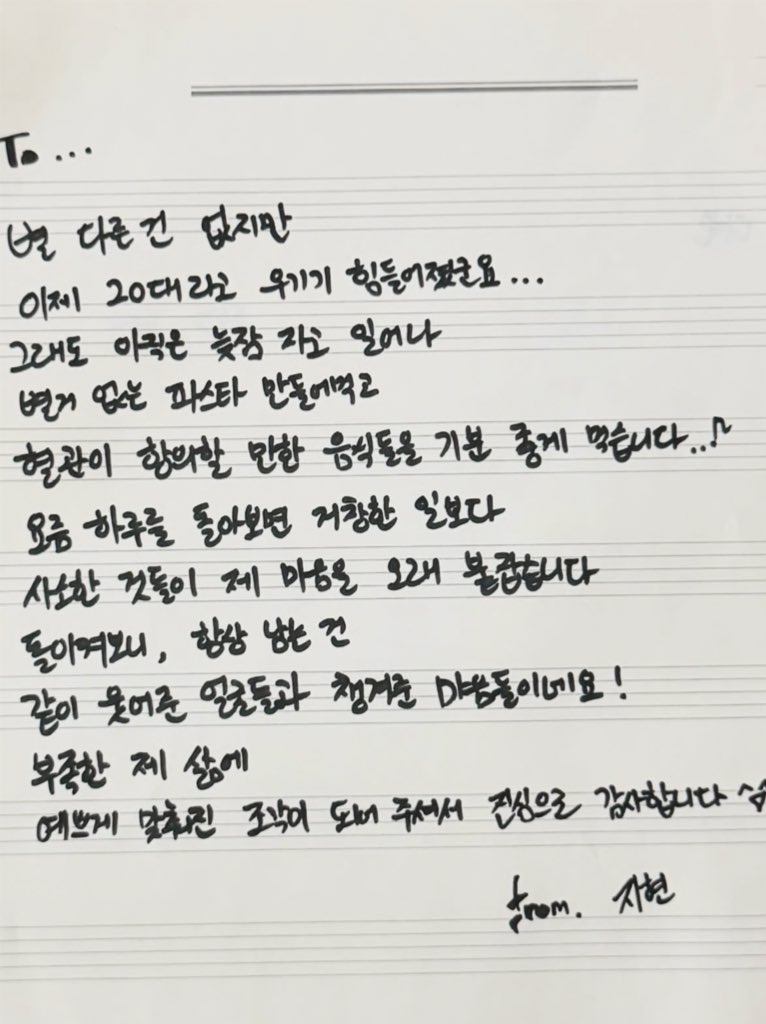 To ...
별 다른건 없지만
이제 20대라고 우기기 힘들어졌군요...
그래도 아직은 늦잠 자고 일어나
별거 없는 파스타 만들어먹고
혈관이 항의할 만한 음식들을 기분 좋게 먹습니다..♪
요즘 하루를 돌아보면 거창한 일보다
사소한 것들이 제 마음을 오래 붙잡습니다
돌이켜보니, 항상 남는 건
같이 웃어준 얼굴들과 챙겨준 마음들이네요!
부족한 제 삶에
예쁘게 맞춰진 조각이 되어 주셔서 진심으로 감사합니다
from. 지현